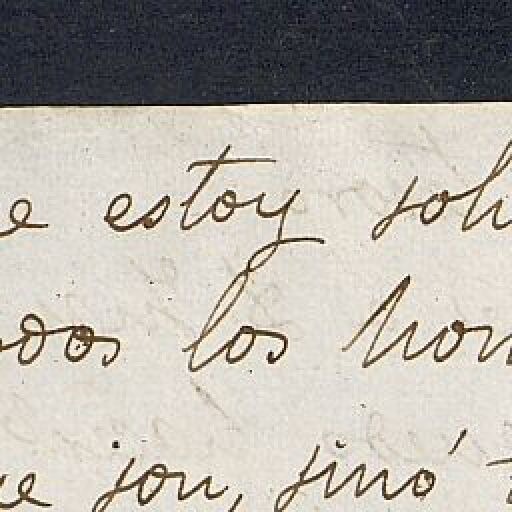 e estoy sol
odos los hom
ue son, sinó